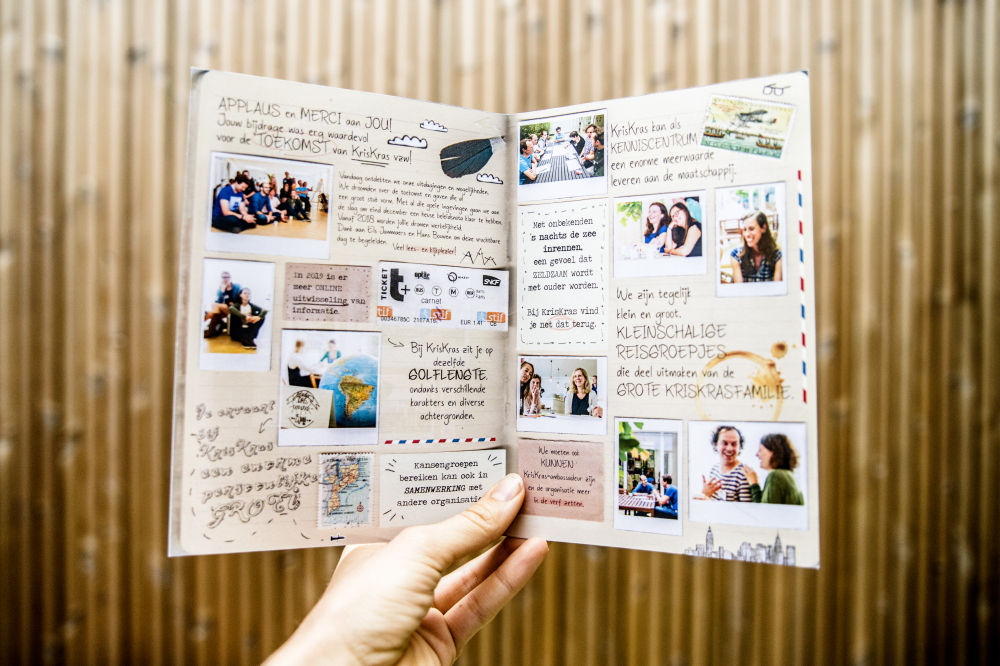 APPLAUS en MERCI aan JOU!
Jouw bijdrage was erg waardevol
voor de TOEKOMST van KrisKras vzw!
Vandaag ontdekten we onze uitdagingen en mogelijkheden.
We droomden over de toekomst en gaven die al
een groot stuk vorm. Met al die goeie ingevingen gaan we aan
de slag om eind december een heuse beleidsnota klaar te hebben.
Vanaf 2018 worden jullie dromen werkelijkheid.
Dank aan Els Janmaers en Hans Bouwen om deze vruchtbare
dag te begeleiden. Veel lees- en kijkplezier!
In 2019 is er
meer ONLINE
uitwisseling van
informatie.
TICKET
t+
optile
RATP
SNCF
BUS
T
M
RER
carnet
stif
00346785C
EUR 1,41
Bij KrisKras zit je op
dezelfde
GOLFLENGTE,
ondanks verschillende
karakters en diverse
achtergronden.
Je ervaart
bij
KrisKras
een enorme
persoonlijke
GROEI
Kansengroepen
bereiken kan ook in
SAMENWERKING met
andere organisaties
KrisKras kan als
KENNISCENTRUM
een enorme meerwaarde
leveren aan de maatschappij.
Met onbekenden
's nachts de zee
inrennen,
een gevoel dat
ZELDZAAM wordt
met ouder worden.
Bij KrisKras vind
je net dat terug.
We zijn tegelijk
klein en groot.
KLEINSCHALIGE
REISGROEPJES
die deel uitmaken van de
GROTE KRISKRASFAMILIE.
We moeten ook
KUNNEN
KrisKras-ambassadeur zijn
en de organisatie mee
in de verf zetten.